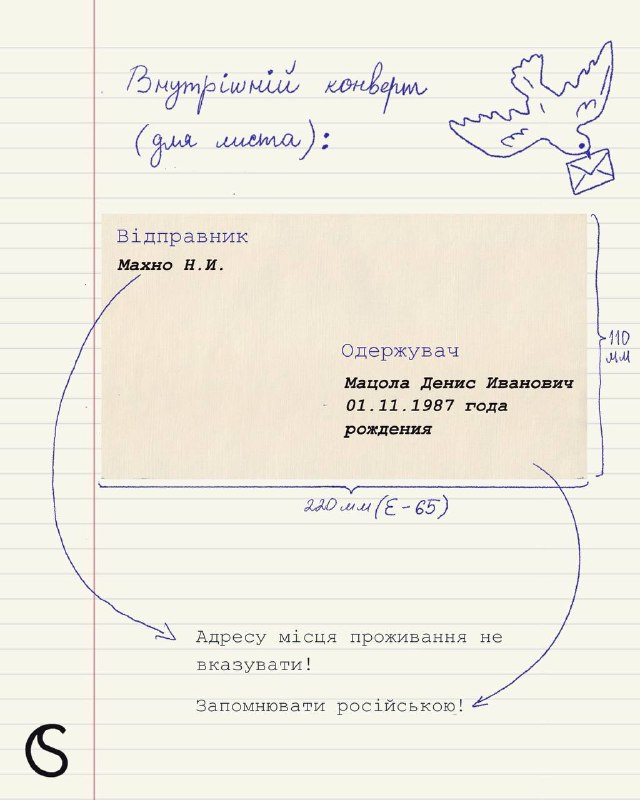 Внутрішній конверт
(для листа):
Відправник
Махно Н.И.
Одержувач
Мацола Денис Иванович
01.11.1987 года
рождения
110
мм
220 мм (E-65)
Адресу місця проживання не
вказувати!
Запомнювати російською!